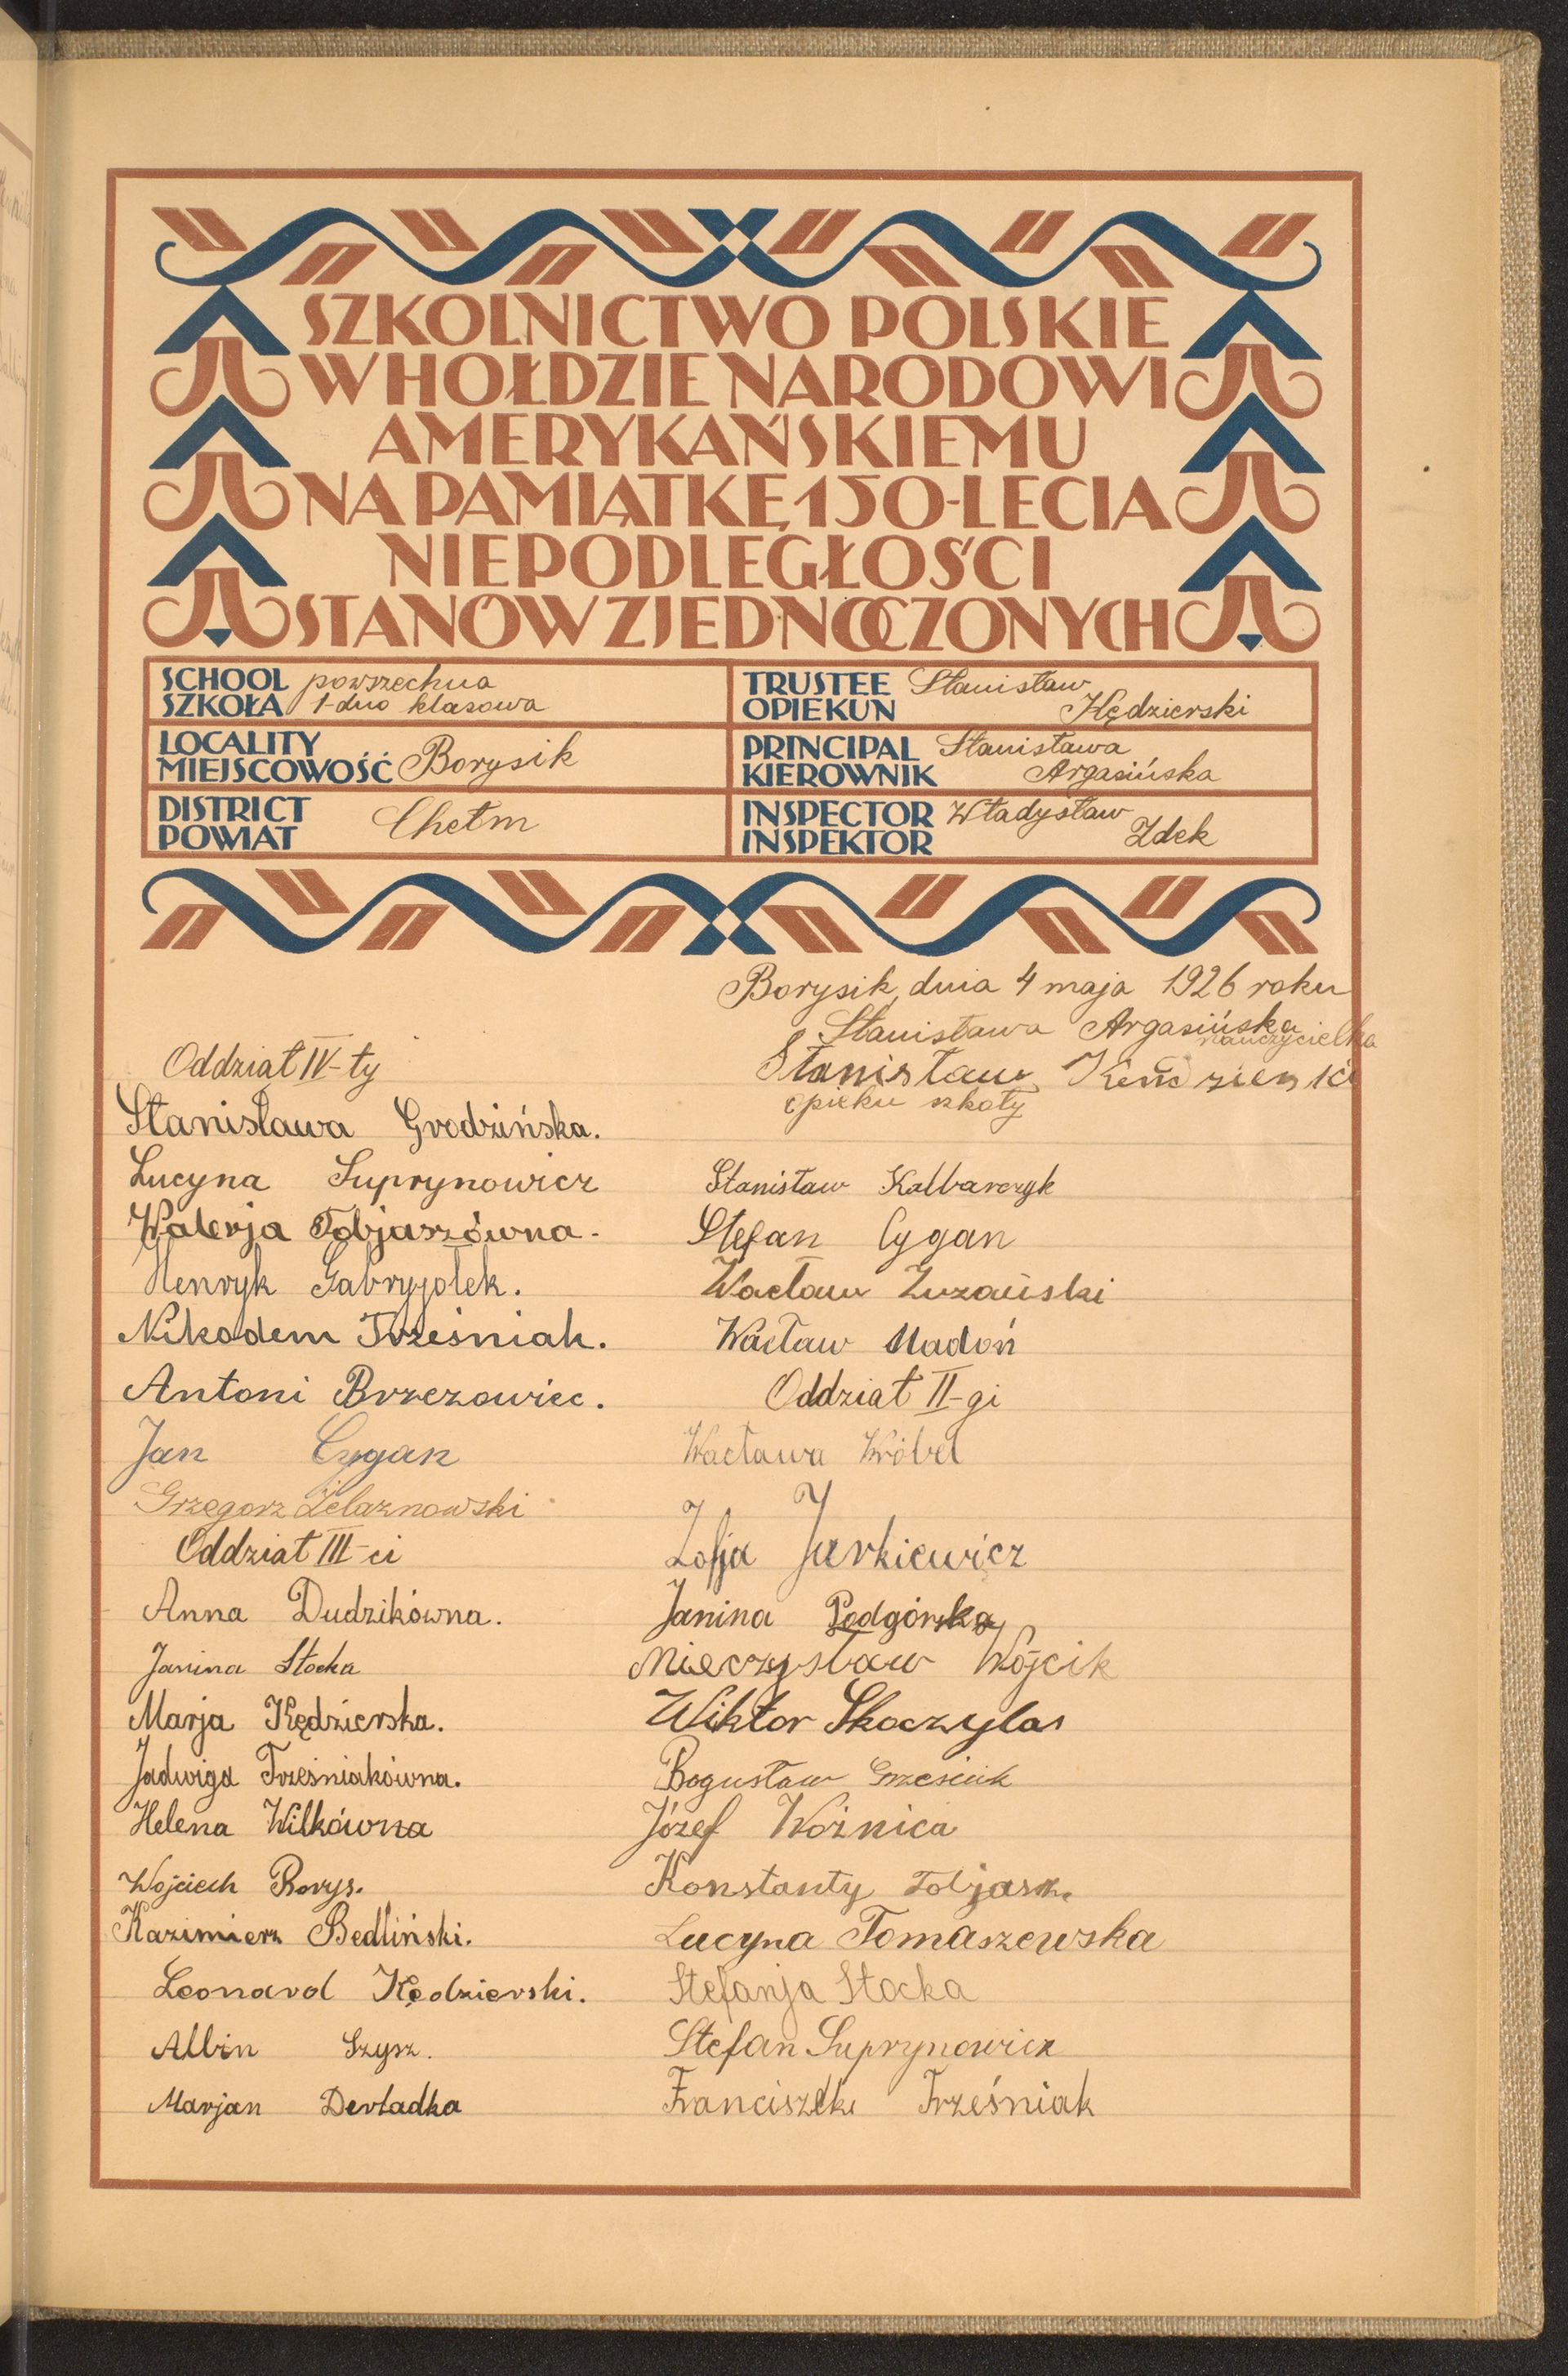 SZKOLNICTWO POLSKIE
W HOŁDZIE NARODOWI
AMERYKAŃSKIEMU
NA PAMIĄTKĘ 150-LECIA
NIEPODLEGŁOŚCI
STANÓW ZJEDNOCZONYCH
SCHOOL
SZKOŁA
powszechna
1-dno klasowa
TRUSTEE
OPIEKUN
Stanisław
Kędzierski
LOCALITY
MIEJSCOWOŚĆ
Borysik
PRINCIPAL
KIEROWNIK
Stanisława
Argasińska
DISTRICT
POWIAT
Chełm
INSPECTOR
INSPEKTOR
Władysław
Zdek
Borysik, dnia 4 maja 1926 roku
Stanisława Argasińska
nauczycielka
Stanisław
opieku szkoły
Oddział IV-ty
Stanisława Grodzińska.
Lucyna Suprynowicz
Walerja Tobjaszówna.
Henryk Gabryjołek.
Nikodem Trześniak.
Antoni Brzezowiec.
Jan Cygan
Grzegorz Żelaznowski
Oddział III-ci
Anna Dudzikówna.
Janina Stocka
Marja Kędzierska.
Jadwiga Trześniakówna.
Helena Wilkówna
Wojciech Borys.
Kazimierz Bedliński.
Leonard Kędzierski.
Albin Szysz.
Marjan Derładka
Stanisław Kalbarczyk
Stefan Cygan
Wacław
Wacław Madoń
Oddział II-gi
Wacława Wróbel
Zofja Jurkiewicz
Janina Podgórska
Mieczysław Wójcik
Wiktor Skoczylas
Bogusław
Józef Woźnica
Konstanty Tobjasz.
Lucyna Tomaszewska
Stefanja Stocka
Stefan Suprynowicz
Franciszek Trześniak